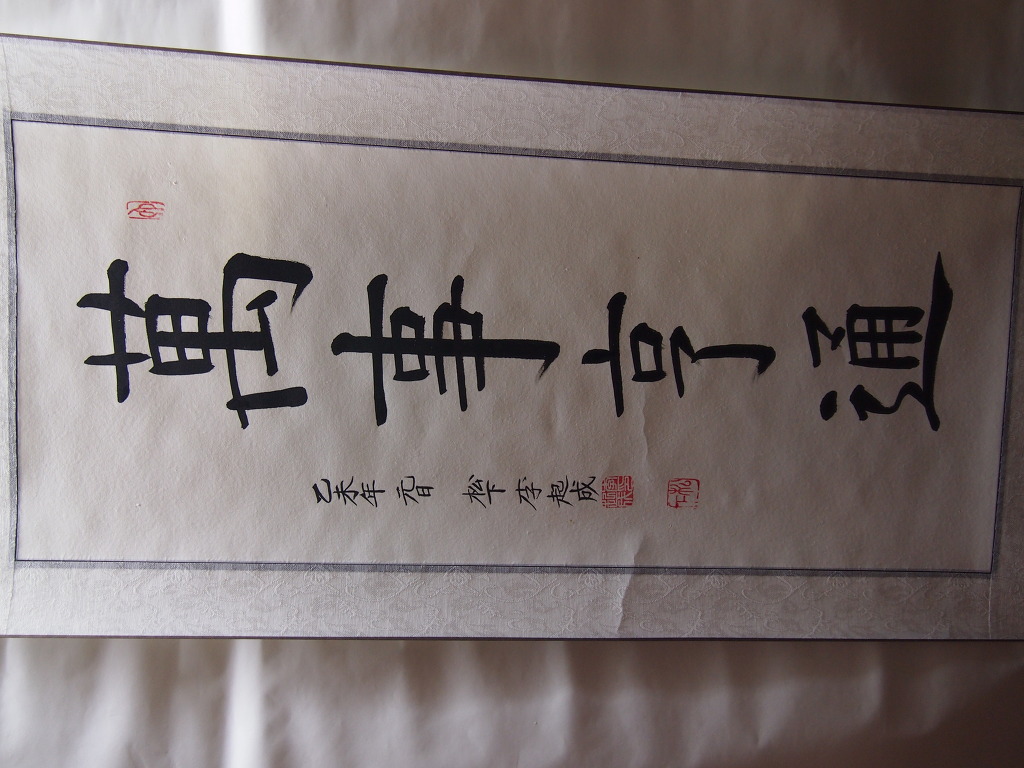 萬事亨通
乙未年 元旦 松下 李起成